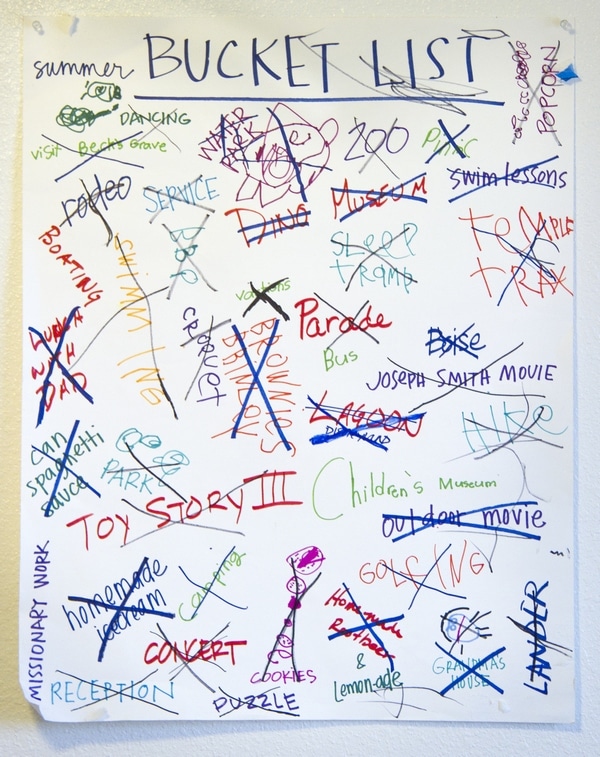 summer BUCKET LIST
POPCORN
DANCING
visit Beck's Grave
WATER
PARK
ZOO
Picnic
swim lessons
rodeo
SERVICE
DINO
MUSEUM
TEMPLE
TRAX
BOATING
SWIMMING
BBQ
SLEEP
TRAMP
vations
CROQUET
BROWNIES
BRINLEY
Parade
Bus
Boise
JOSEPH SMITH MOVIE
LUNCH
WITH
DAD
LAGOON
HIKE
can
spaghetti
sauce
PARK
TOY STORY III
Children's Museum
outdoor movie
MISSIONARY WORK
homemade
icecream
camping
GOLFING
CONCERT
COOKIES
Homemade
Rootbeer
&
Lemonade
GRANDMA'S
HOUSE
LANDER
RECEPTION
PUZZLE